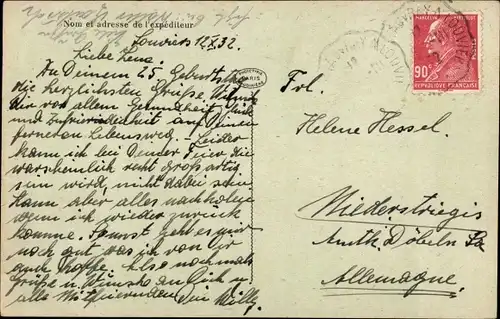 Nom et adresse de l'expéditeur
Louviers 12.X.32.
Liebe Lena
Zu Deinem 25 Geburtstag
die herzlichsten Grüße, Wünsche
dir vor allem Gesundheit Glück
und Zufriedenheit auf Deinen
ferneren Lebensweg. Leider
kann ich bei Deiner Feier die
warscheinlich recht großartig
sein wird, nicht dabei sein
Kann aber alles nachholen
wenn ich wieder zurück
komme. Sonnst geht es mir
noch gut was ich von Dir
auch hoffe. Also nochmals
Grüße u. Wünsche an Dich u.
alle Mitfeiernden Dein Willy
PARIS
MARCELIN BERTHELOT
90c
POSTES
REPUBLIQUE FRANÇAISE
Frl.
Helene Hessel.
Niederstriegis
Amth. Döbeln Sa
Allemagne.